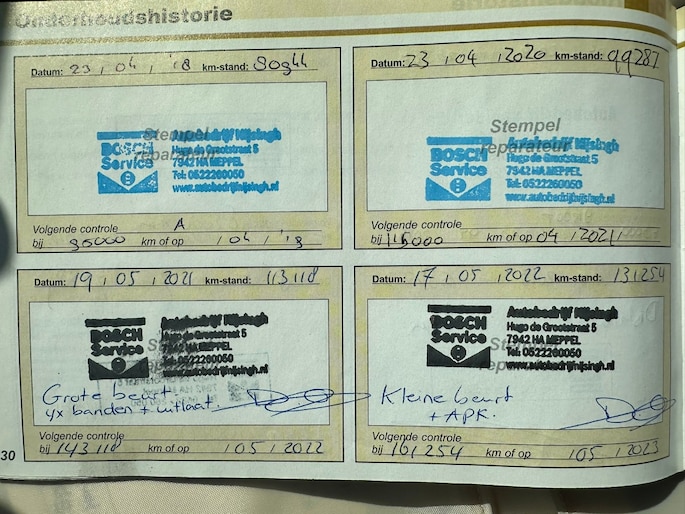 Onderhoudshistorie
Datum: 23 , 04 , '18 km-stand: 80944
Stempel
reparateur
BOSCH
Service
Autobedrijf Nijsingh
Hugo de Grootstraat 5
7942 HA MEPPEL
Tel: 0522260050
www.autobedrijfnijsingh.nl
Volgende controle A
bij 95000 km of op / 04 / '19
Datum: 23 , 04 , 2020 km-stand: 99287
Stempel
reparateur
BOSCH
Service
Autobedrijf Nijsingh
Hugo de Grootstraat 5
7942 HA MEPPEL
Tel: 0522260050
www.autobedrijfnijsingh.nl
Volgende controle
bij 115000 km of op 04 / 2021
Datum: 19 , 05 , 2021 km-stand: 113118
BOSCH
Service
Autobedrijf Nijsingh
Hugo de Grootstraat 5
7942 HA MEPPEL
Tel: 0522260050
www.autobedrijfnijsingh.nl
Grote beurt
4x banden + uitlaat.
Volgende controle
bij 143118 km of op / 05 / 2022
Datum: 17 , 05 , 2022 km-stand: 131254
BOSCH
Service
Autobedrijf Nijsingh
Hugo de Grootstraat 5
7942 HA MEPPEL
Tel: 0522260050
www.autobedrijfnijsingh.nl
Kleine beurt
+ APK.
Volgende controle
bij 161254 km of op / 05 / 2023
30